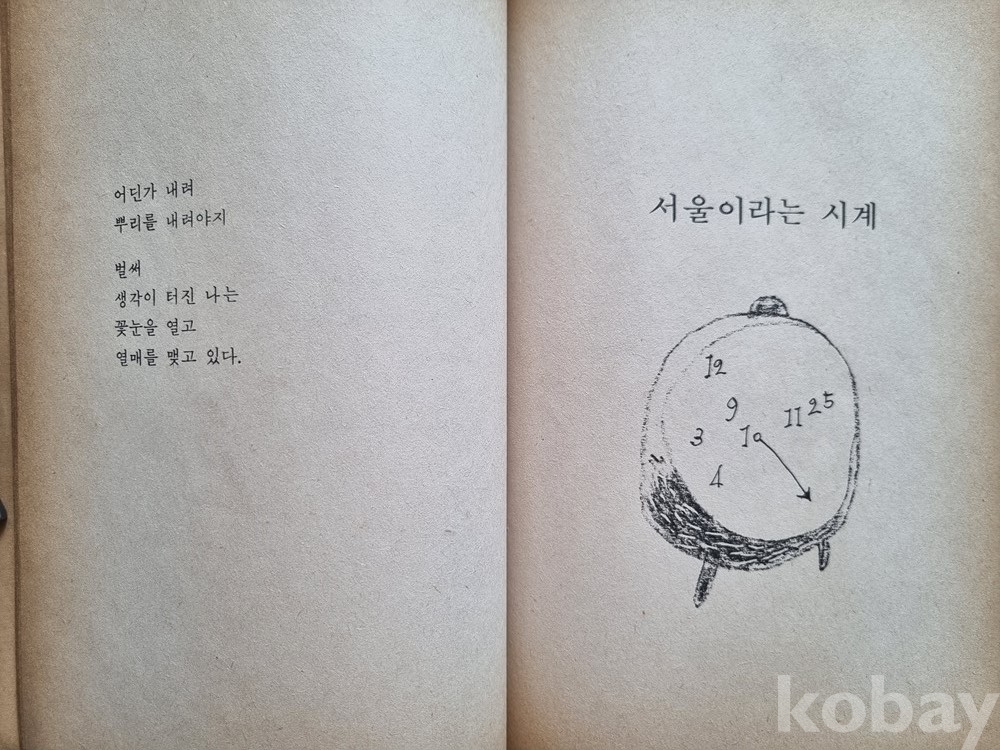 어딘가 내려
뿌리를 내려야지
벌써
생각이 터진 나는
꽃눈을 열고
열매를 맺고 있다.
서울이라는 시계
12
9
11 25
3
10
4
kobay